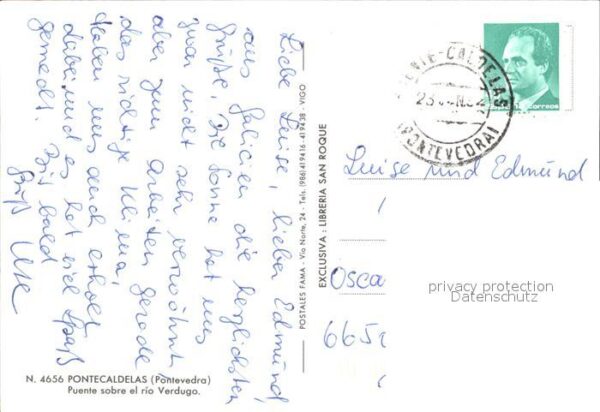 Liebe Luise, lieber Edmund,
aus Galicien die herzlichsten
Grüße. Die Sonne hat uns
zwar nicht sehr verwöhnt,
aber zum Arbeiten gerade
das richtige Klima.
Haben uns auch erholt
dabei und es hat viel Spaß
gemacht. Bis bald
Gruß
POSTALES FAMA - Vía Norte, 24 - Tels. (986) 419416 - 419438 - VIGO
EXCLUSIVA: LIBRERIA SAN ROQUE
N. 4656 PONTECALDELAS (Pontevedra)
Puente sobre el río Verdugo.
correos
NTE-CALDELAS
(PONTEVEDRA)
Luise und Edmund
Osca
665
privacy protection
Datenschutz